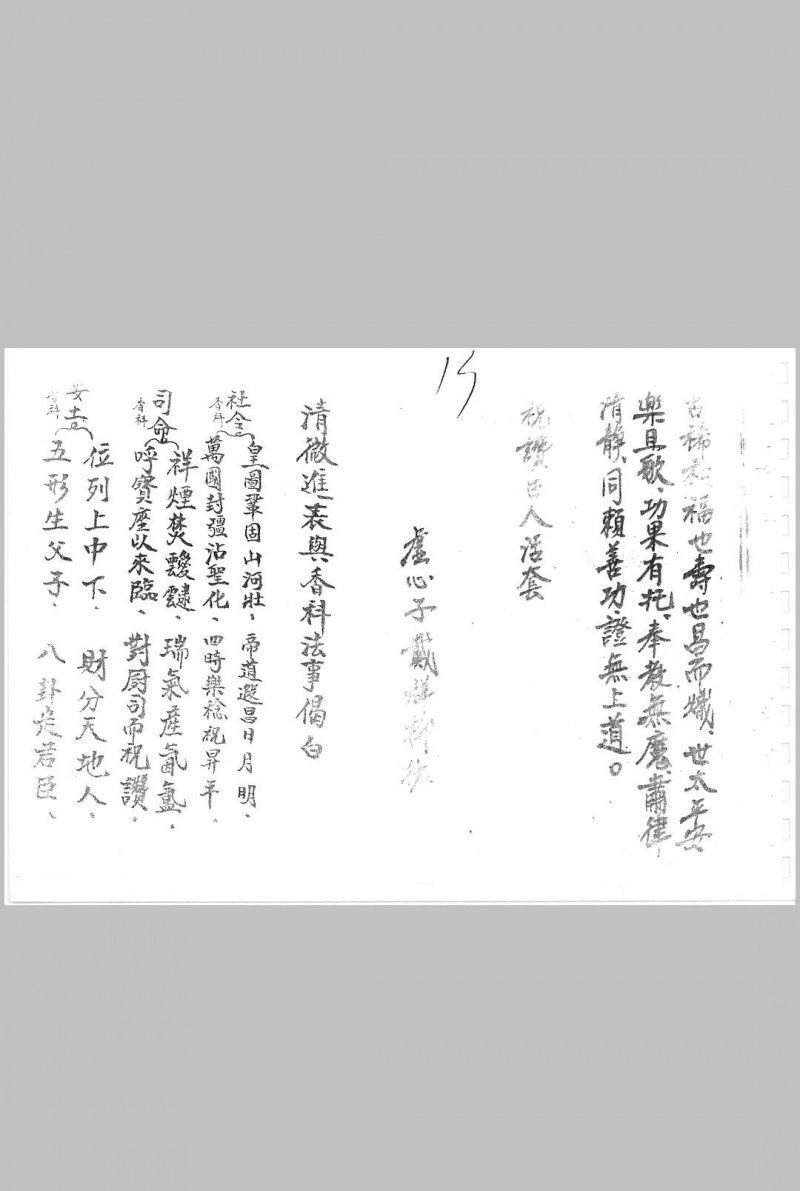 古稀 福也壽也昌而熾、世太平安
樂且歌、功果有托、奉教無魔、肅律
清靜、同賴善功、證無上道。
15
祝讚 人活套
虛心子戴
清微進表與香科法事偈白
社令
香科
皇圖鞏固山河壯、帝道遐昌日月明、
萬國封疆沾聖化、四時樂稔祝昇平、
司命
香科
祥煙焚靉靆、瑞氣產氤氳、
呼寶座以來臨、對厨司而祝讚、
安土
香科
位列上中下、財分天地人、
五形生父子、八卦定君臣、